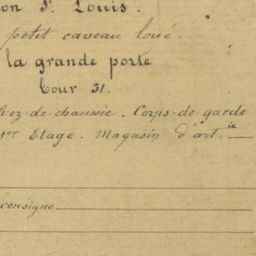 on St. Louis.
petit caveau loué.
la grande porte
Cour 31.
ez-de-chaussée. Corps-de-garde
1er Etage. Magasin d'art.ie
consigne